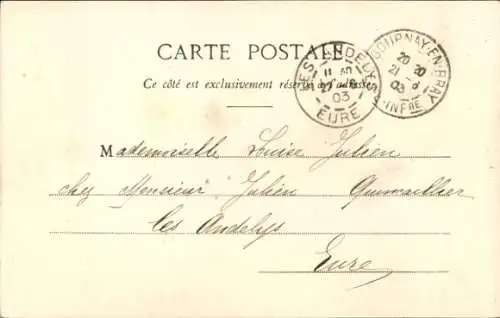 CARTE POSTALE
Ce côté est exclusivement réservé à l'adresse
LES ANDELYS
11 30
03
EURE
GOURNAY-EN-BRAY
20 20
21
03
INFRE
Mademoiselle Luise Julien
chez Monsieur Julien Quincaillier
Les Andelys
Eure